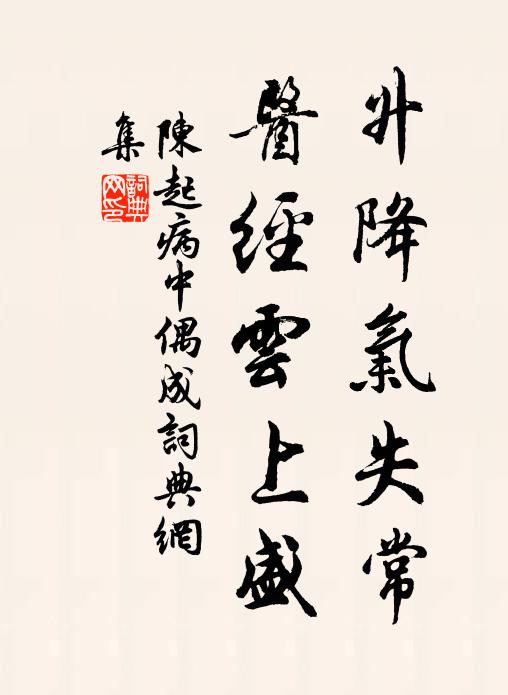 升降氣失常
醫經雲上盛
陳起病中偶成詞典網
集
詞典
網印